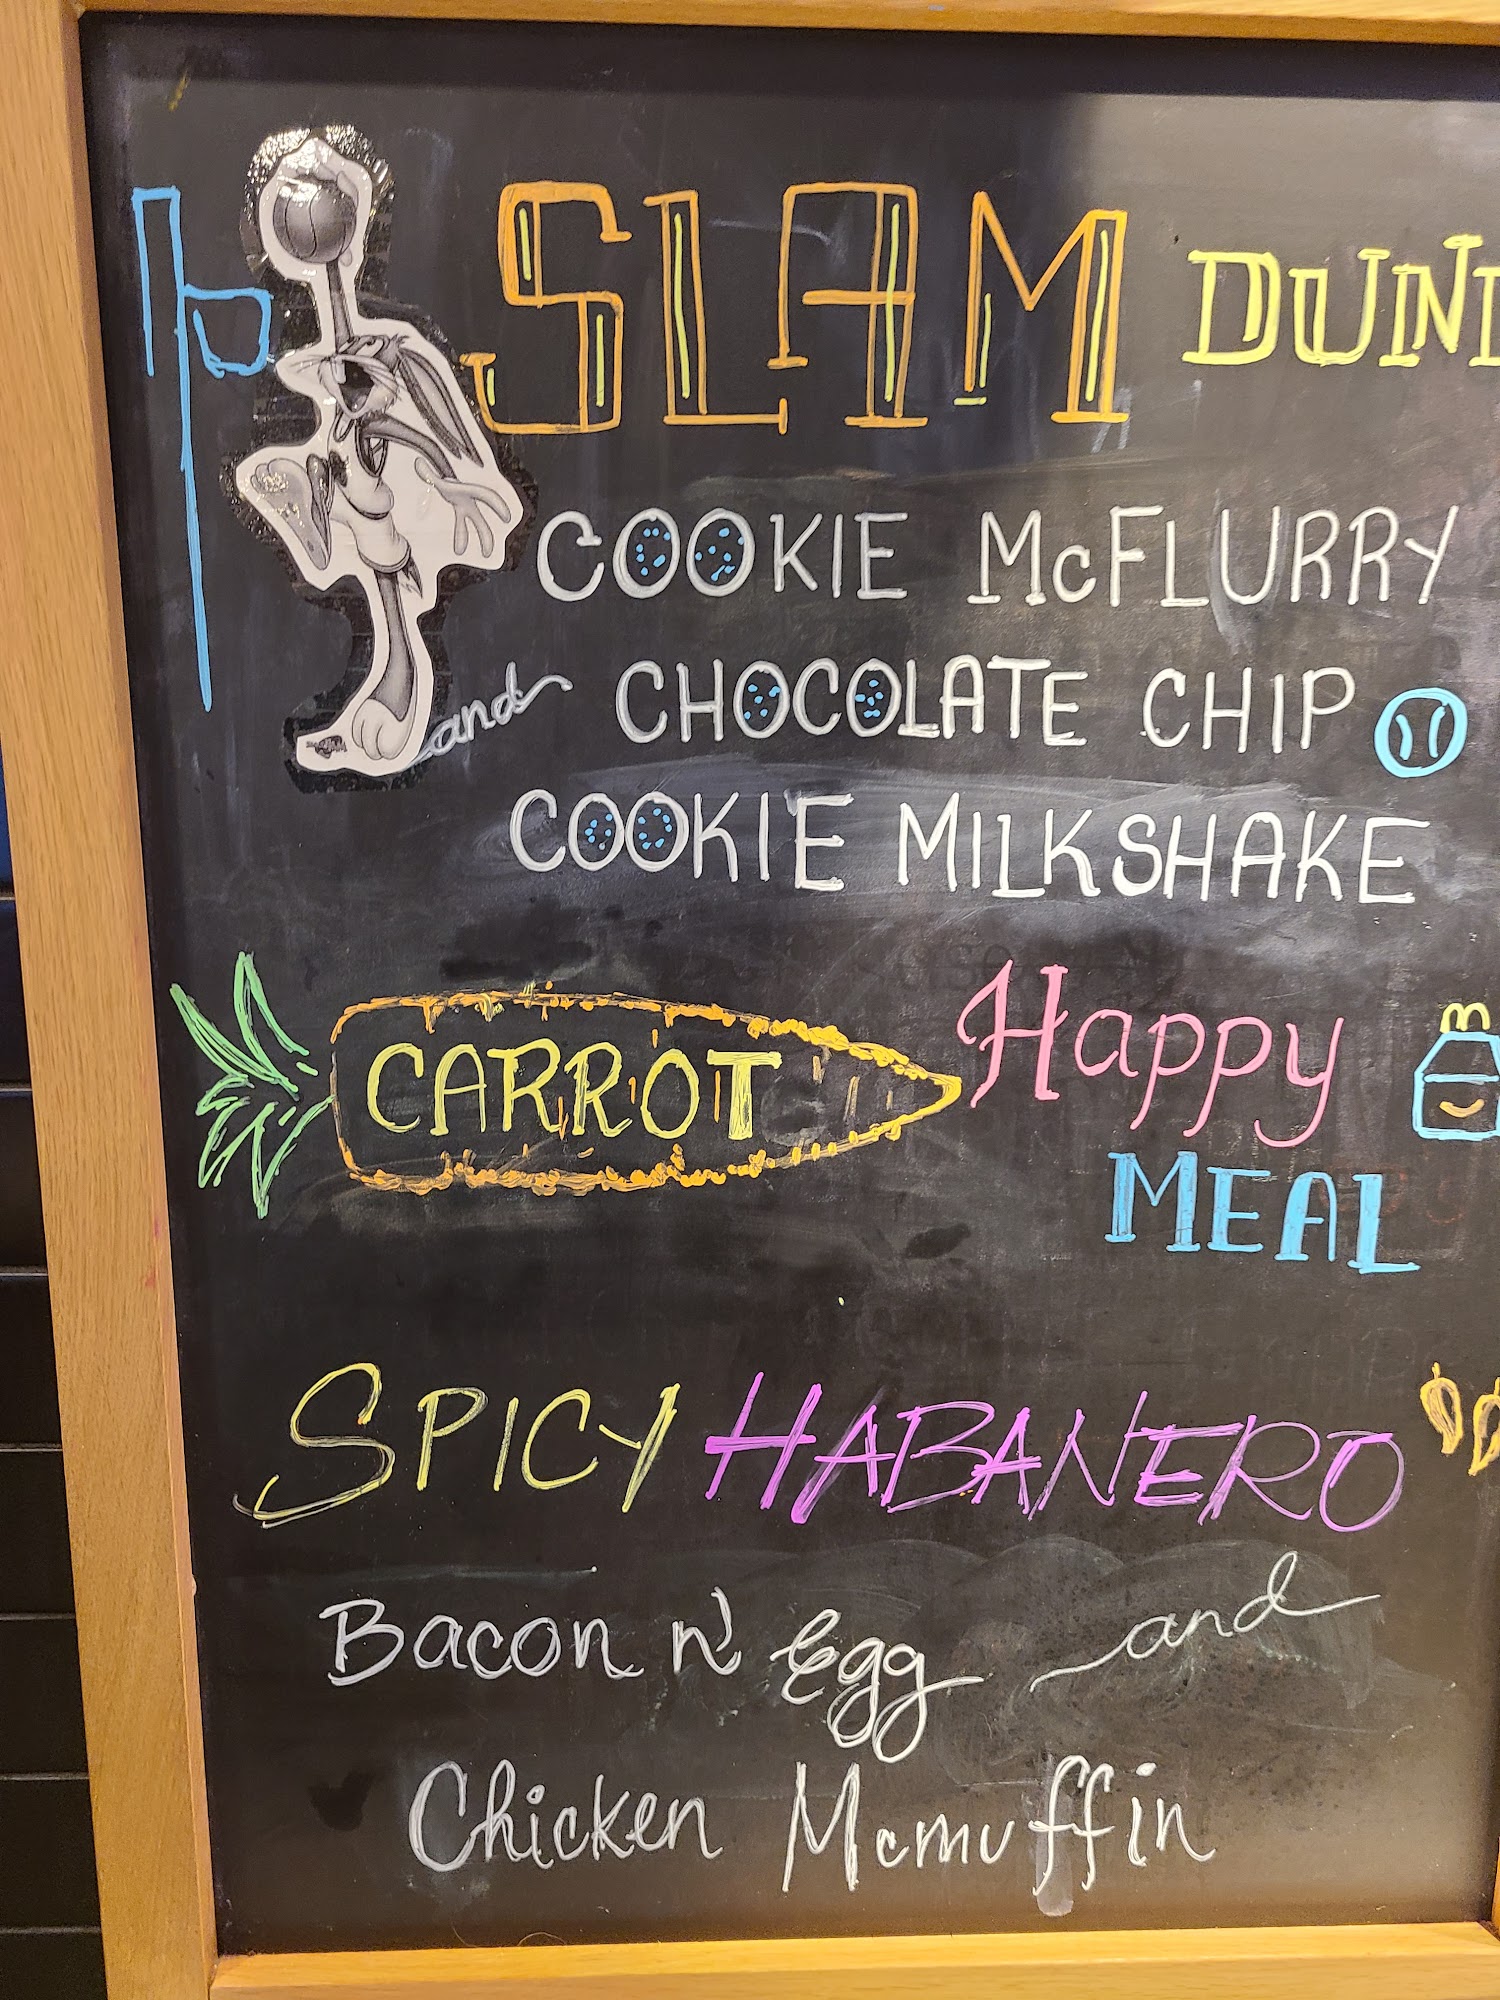 SLAM DUN
COOKIE McFLURRY
and CHOCOLATE CHIP
COOKIE MILKSHAKE
CARROT Happy
MEAL
SPICY HABANERO
Bacon n' Egg and
Chicken Mcmuffin